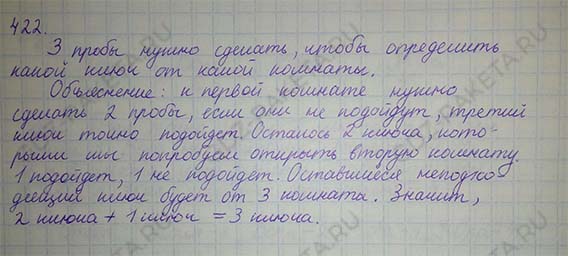 422.
3 пробы нужно сделать, чтобы определить
какой ключ от какой комнаты.
Объяснение: к первой комнате нужно
сделать 2 пробы, если они не подойдут, третий
ключ точно подойдет. Осталось 2 ключа, кото-
рыми мы попробуем открыть вторую комнату.
1 подойдет, 1 не подойдет. Оставшиеся неподхо-
дящий ключ будет от 3 комната. Значит,
2 ключа + 1 ключ = 3 ключа.